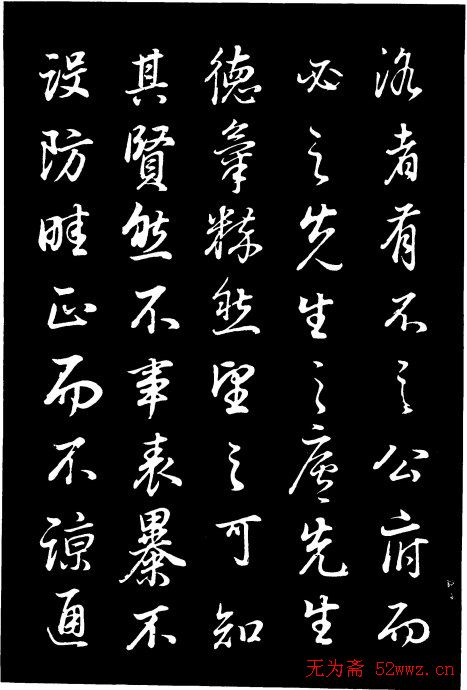 洛者有不之公府而
必之先生之廬先生
德氣粹然望之可知
其賢然不事表暴不
設防畦正而不諒通
无为斋 52wwz.cn